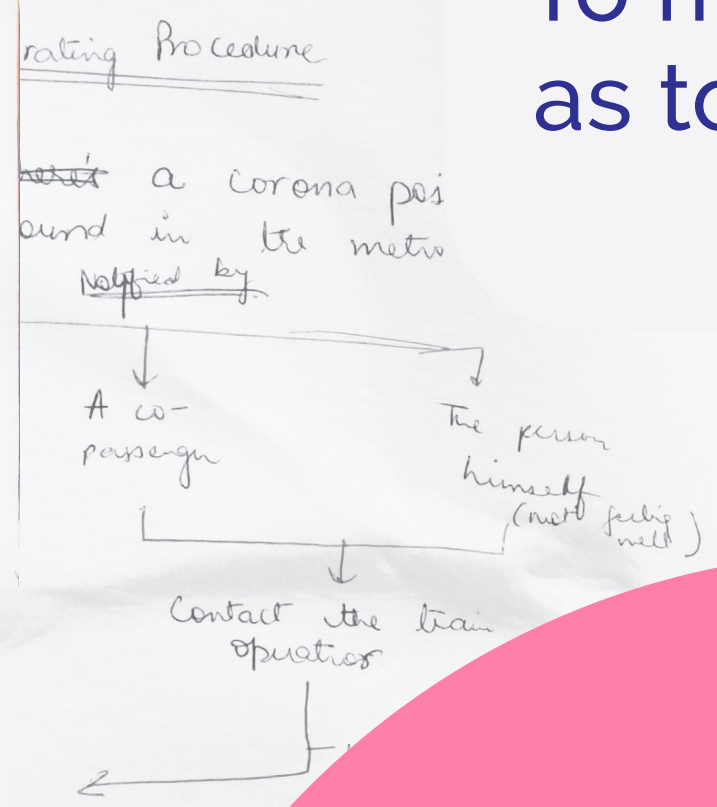 To
as to
rating Procedure
a corona pos
ound in the metro
Notified by
A co-
passenger
The person
himself
(not feeling
well)
Contact the train
operator